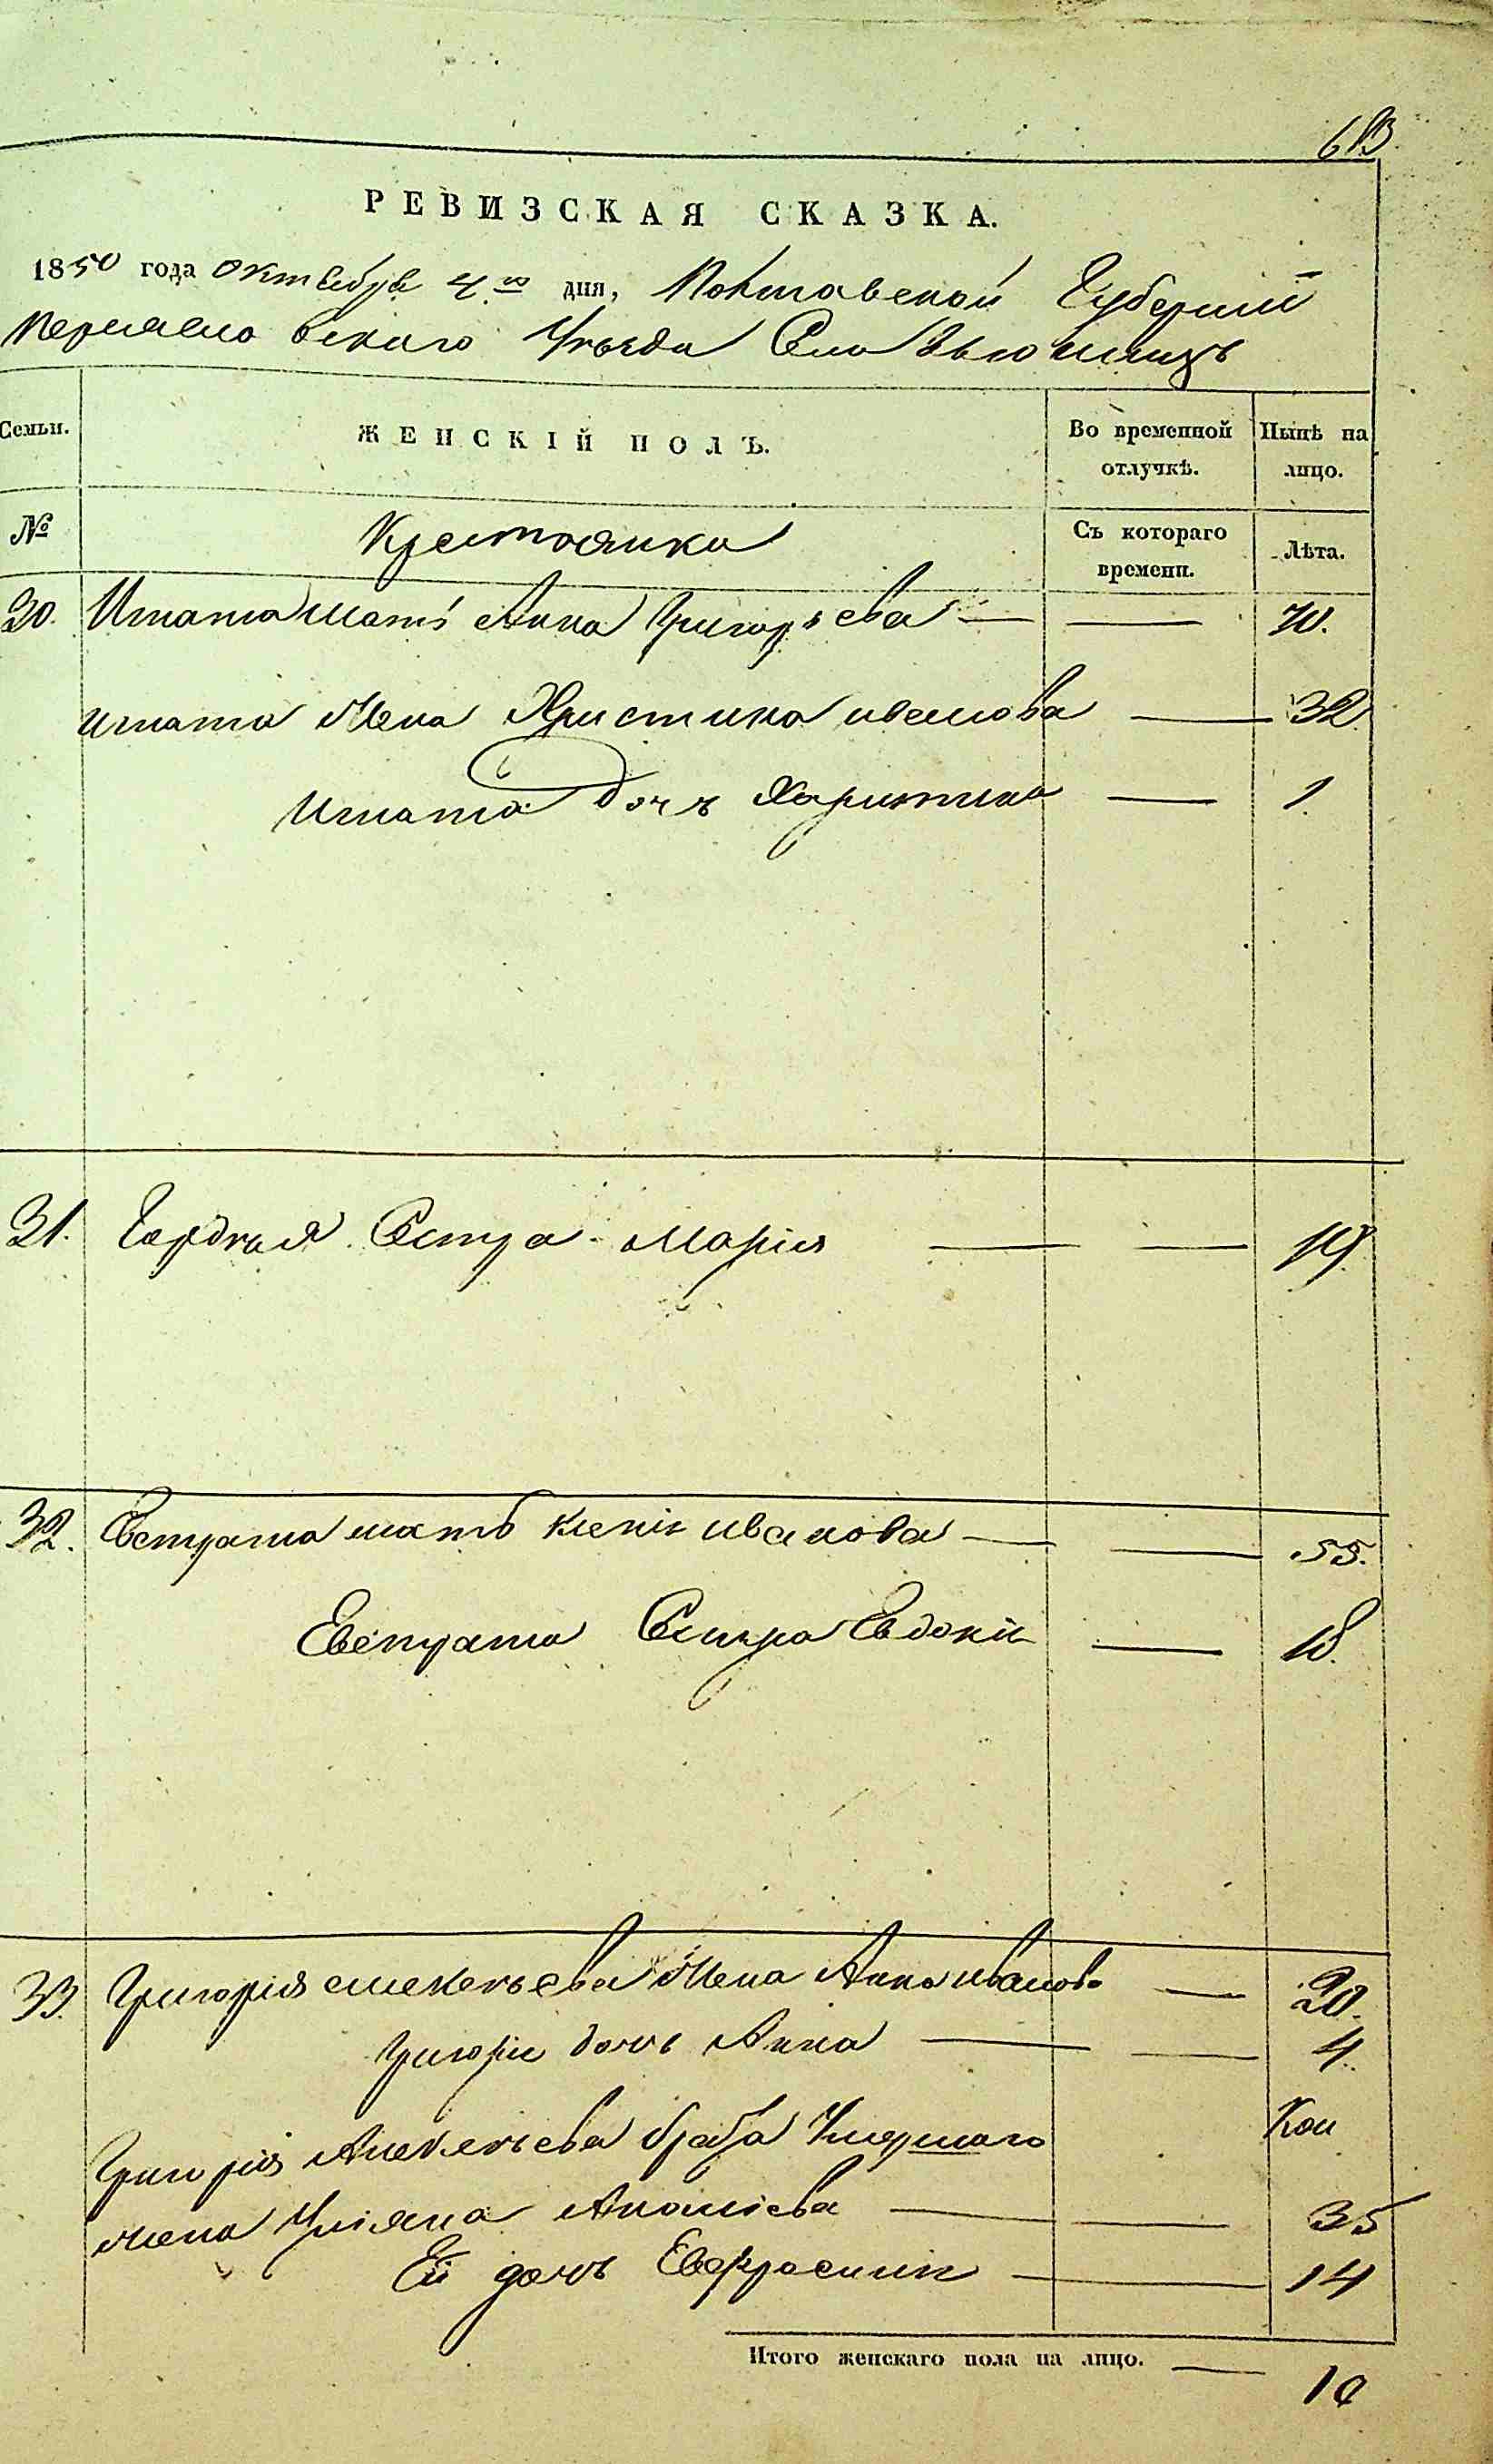 613
РЕВИЗСКАЯ СКАЗКА.
1850 года Октября 4го дня, Полтавской Губернии
Переяславского Уезда Села Вьюнищъ
Семьи.
ЖЕНСКІЙ ПОЛЪ.
Во временной отлучкѣ.
Нынѣ на лицо.
№
Крестьянки
Съ котораго времени.
Лѣта.
30. Игната мать Анна Григорьева — — 70.
Игната жена Христина иванова — 32
Игната дочъ Харитина — 1.
31. Гордѣя Сестра Марія — — 19.
32. Евстрата мать Ксенія иванова — — 55.
Евстрата Сестра Евдокія — 18.
33. Григорія алексѣева жена Анна иванова — 20.
Григорія дочь Анна — — 4.
Григорія Алексѣева брата Умершаго
жена Уліяна Ананіева — — 35
Ей дочь Евфросинія — 14
Итого женскаго пола на лицо. — 10